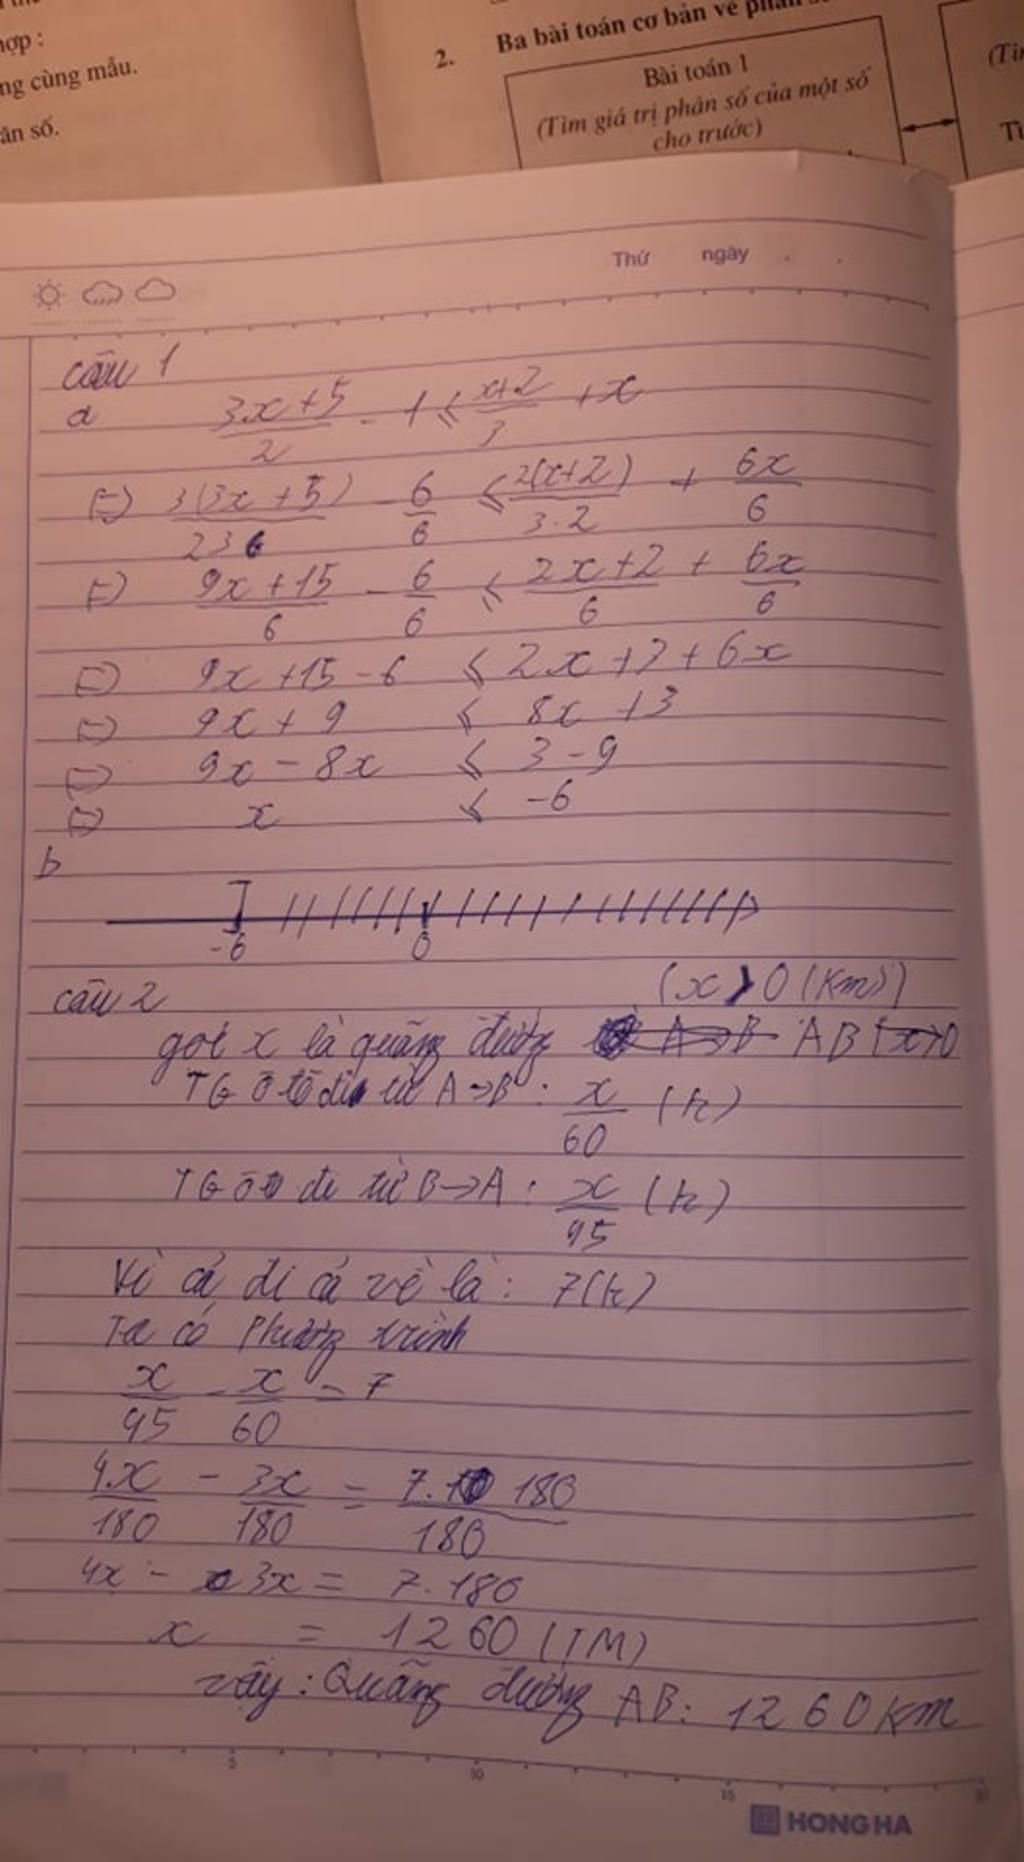 hợp :
ng cùng mẫu.
ân số.
2. Ba bài toán cơ bản về phân s
Bài toán 1
(Tìm giá trị phân số của một số
cho trước)
(Tìn
Tì
Thứ ngày
Câu 1
a 3x+5/2 - 1 ≤ x+2/3 + x
(=) 3(3x+5)/2 3 6 - 6/6 ≤ 2(x+2)/3.2 + 6x/6
(=) 9x+15/6 - 6/6 ≤ 2x+2/6 + 6x/6
(=) 9x+15-6 ≤ 2x+3+6x
(=) 9x+9 ≤ 8x+3
(=) 9x-8x ≤ 3-9
(=) x ≤ -6
b
-6 0
câu 2 (x > 0 (Km))
gọi x là quãng đường A→B AB (x>0
TG Ô tô đi từ A→B : x/60 (h)
TG Ô tô đi từ B→A : x/45 (h)
Vì cả đi cả về là : 7(h)
Ta có Phương trình
x/45 - x/60 = 7
4x/180 - 3x/180 = 7. 180/180
4x - 3x = 7.180
x = 1260 (TM)
vậy : Quãng đường AB: 1260 Km
5 10 15
HONG HA